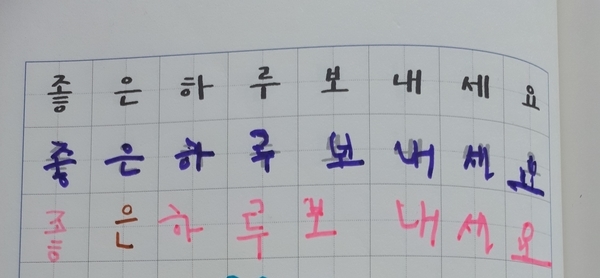 좋은하루보내세요
좋은하루보내세요
좋은하루보내세요